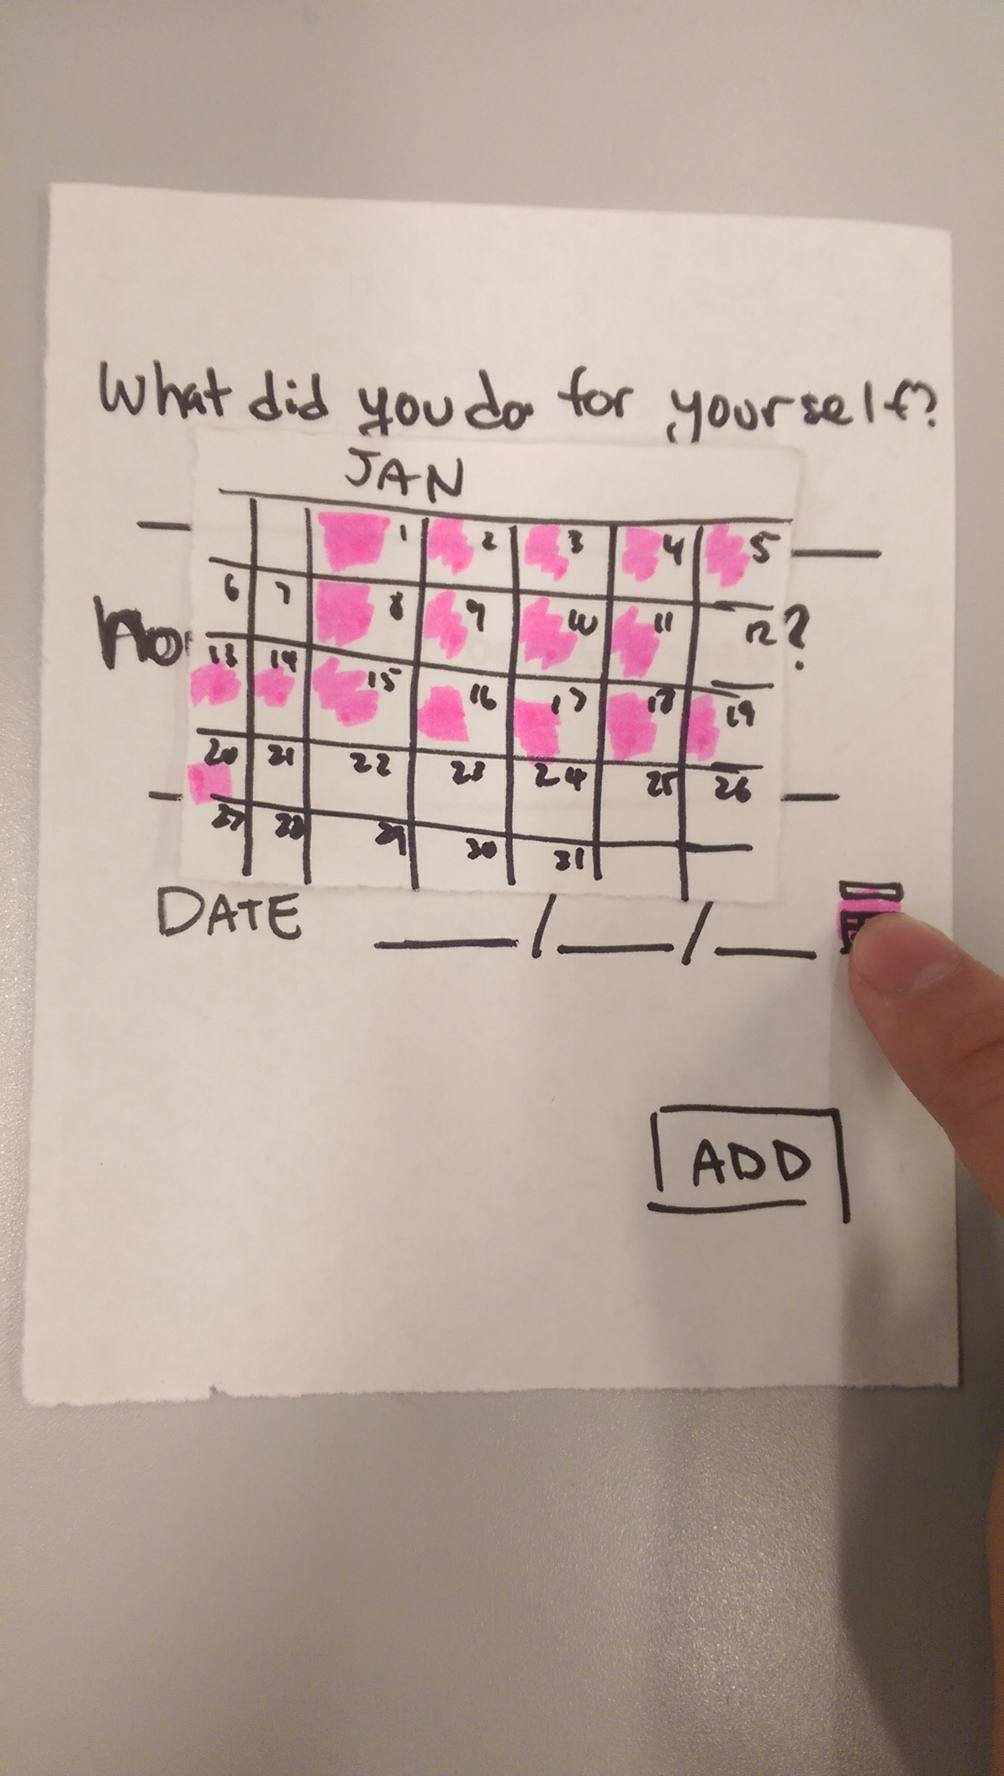 What did you do for yourself?
JAN
1 2 3 4 5
6 7 8 9 10 11 12
?
13 14 15 16 17 18 19
20 21 22 23 24 25 26
27 28 29 30 31
DATE ___/___/___
ADD